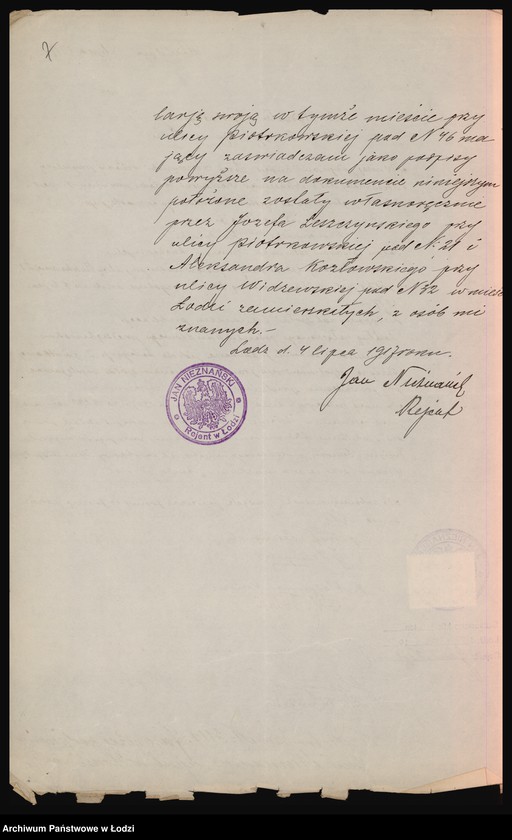 larją swoją w tymże mieście przy
ulicy Piotrkowskiej pod N 46 ma-
jący zaświadczam jako podpisy
powyższe na dokumencie niniejszym
położone zostały własnoręcznie
przez Józefa Leszczyńskiego przy
ulicy Piotrkowskiej pod N. 21 i
Aleksandra Kozłowskiego przy
ulicy Widzewskiej pod N 32 w mieście
Łodzi zamieszkałych, z osób mi
znanych.-
Łódź d. 4 lipca 1917 roku.
Jan Nieznański
Rejent
JAN NIEZNAŃSKI
Rejent w Łodzi
Archiwum Państwowe w Łodzi